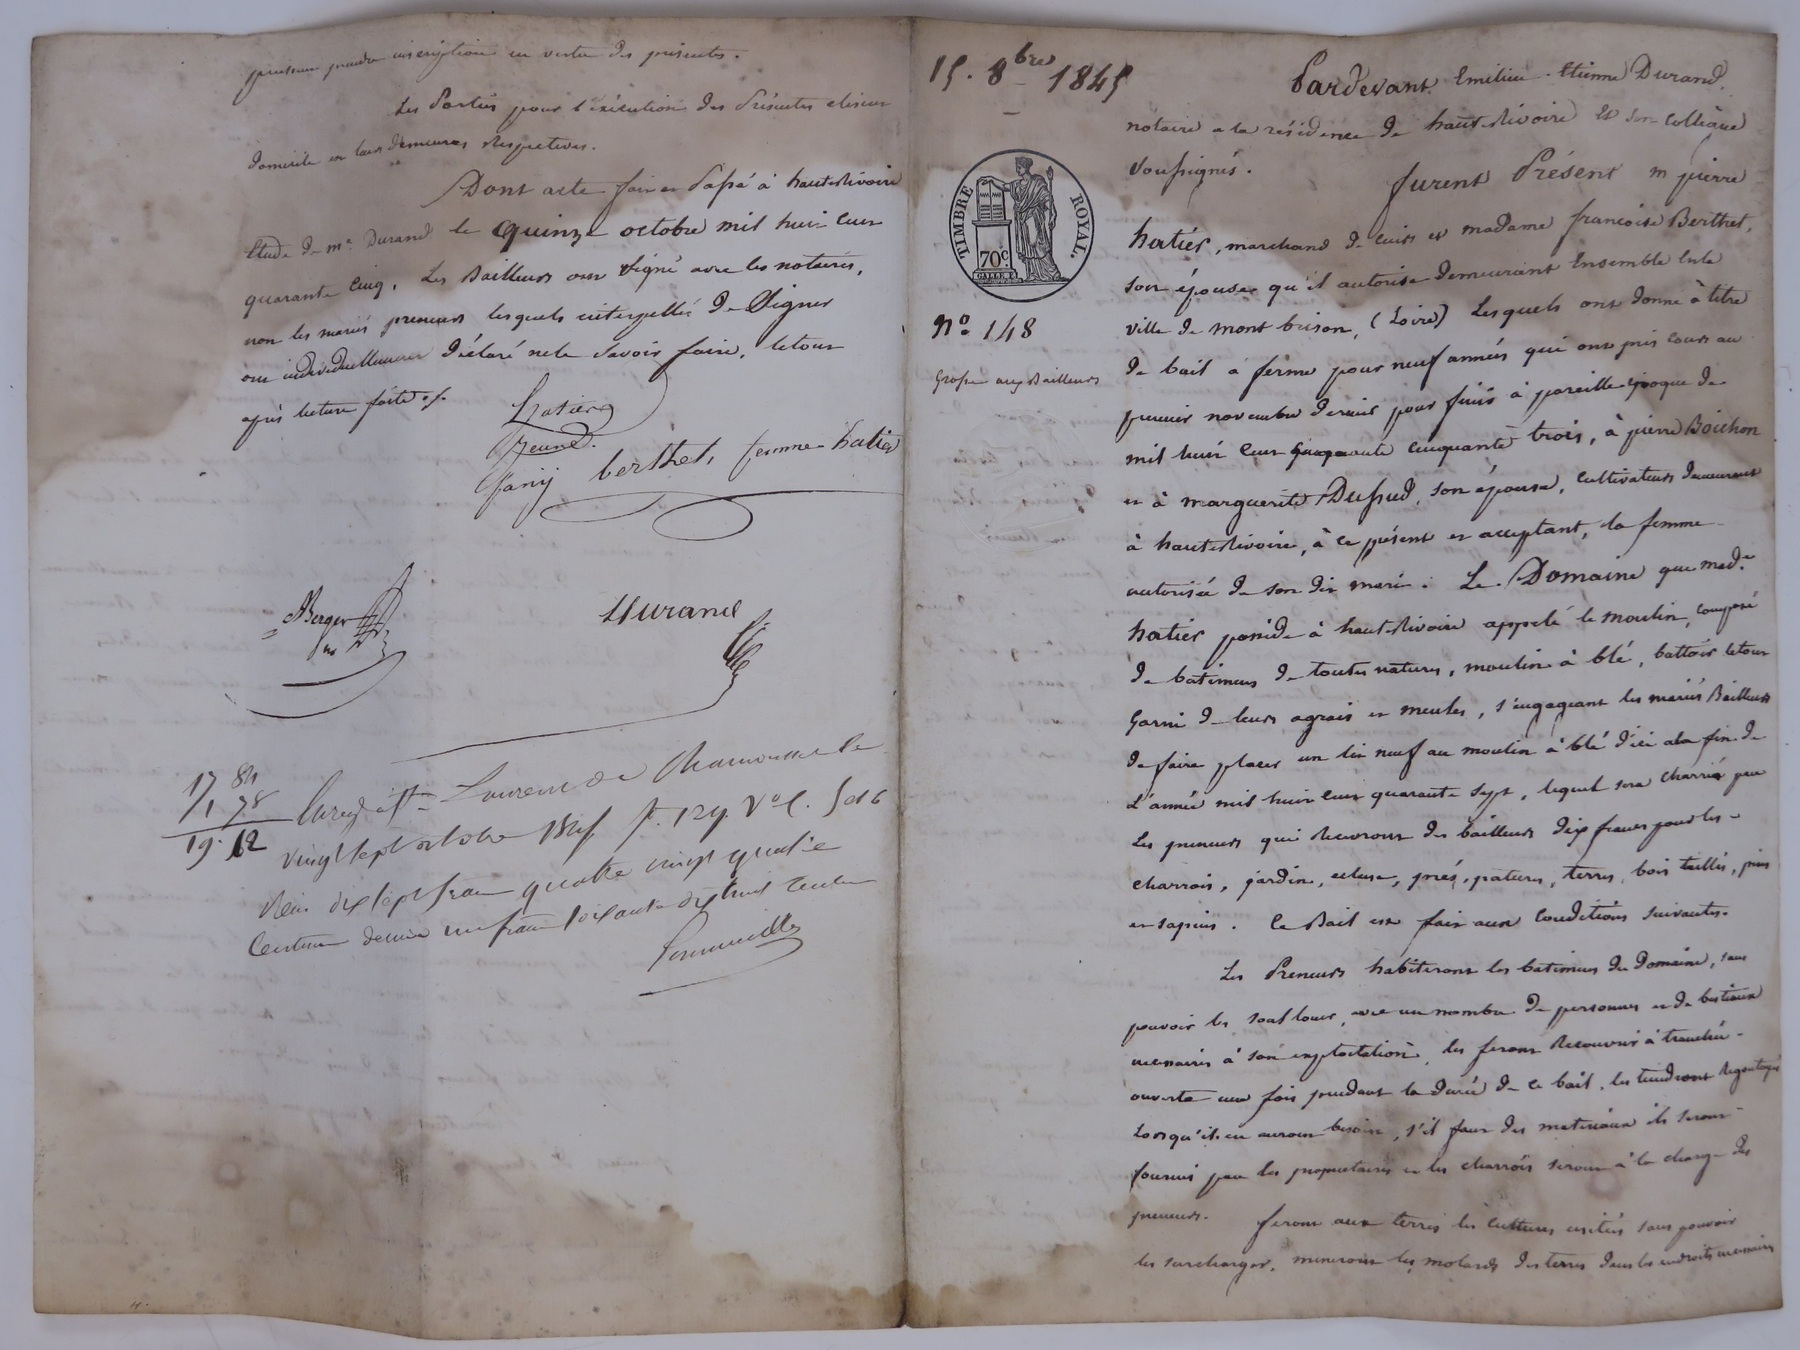 prendre inscription en vertu des présentes.
Les Parties pour l'exécution des Présentes elisent
domicile en leurs demeures Respectives.
Dont acte fait et Passé à hauterivoire
Etude de me. Durand le quinze octobre mil huit cent
quarante cinq. Les Bailleurs ont signé avec les notaires,
non les mariés preneurs lesquels interpellés de Signer
ont individuellement déclaré ne le savoir faire, letout
après lecture faite ./.
hatier
Jeune.
fany berthet, femme hatier
Berger
Durand
17 84
1 78
19. 62
Enregistré à St Laurent de Chamousset le
vingt sept octobre 1845 f. 129 Vo C. 5 et 6
Reçu dix sept francs quatre vingt quatre
Centimes decime un franc soixante dix huit centimes
15. 8bre 1845
TIMBRE ROYAL.
70c.
No 148
Grosse aux Bailleurs
Pardevant Emilien Etienne Durand,
notaire a la résidence de hauterivoire Et son Collègue
soussignés.
furent Présent m pierre
hatier, marchand de cuirs et madame francoise Berthet,
son épouse qu'il autorise demeurant Ensemble en la
ville de mont brison, (Loire) Lesquels ont donné à titre
de bail à ferme pour neuf années qui ont pris cours au
premier novembre dernier pour finir à pareille époque de
mil huit cent cinquante trois, à pierre Boichon
et à marguerite Dussud, son épouse, cultivateurs demeurant
à hauterivoire, à ce présent et acceptant, la femme
autorisée de son dit mari. Le Domaine que made.
hatier possède à hauterivoire appelé le moulin, composé
de batimens de toutes natures, moulin à blé, battoir letout
Garni de leurs agrais et meules, s'engageant les mariés Bailleurs
de faire placer un lit neuf au moulin à blé d'ici a la fin de
L'année mil huit cent quarante sept, lequel sera charrié par
Les preneurs qui Recevront des bailleurs dix francs pour les
charrois, jardin, ecluse, prés, patures, terres, bois taillis, pins
et sapins. Ce Bail est fait aux Conditions suivantes.
Les Preneurs habiteront les batimens du Domaine, sans
pouvoir les sous louer, avec un nombre de personnes et de bestiaux
necessaires à son exploitation, les feront Recouvrir à tranchée
ouverte une fois pendant la durée de ce bail, les tiendront Regoutoyés
Lorsqu'ils en auront besoin, s'il faut des matériaux ils seront
fournis par les propriétaires et les charrois seront à la charge des
preneurs. feront aux terres les cultures usitées sans pouvoir
les surcharger, mineront les molards des terres dans les endroits necessaires